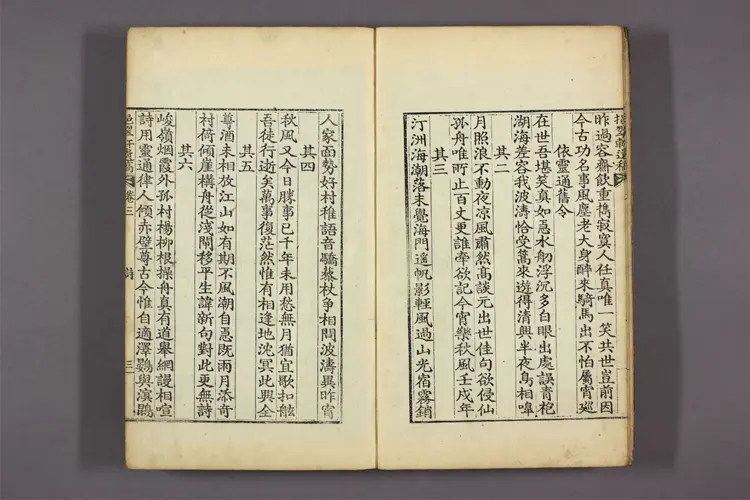 昨過容齋飮重擕寂寞人任眞唯一笑共世豈前因
今古功名事風塵老大身醉來騎馬出不怕屬宵廵
依靈通舊令
在世吾堪笑眞如惡水舠浮沉多白眼出處誤靑袍
湖海差容我波濤恰受蒿來遊得淸興半夜鳥相嘷
其二
月照浪不動夜凉風肅然高談元出世佳句欲侵仙
孤舟唯所止百丈更誰牽欲記今宵樂秋風壬戌年
其三
汀洲海潮落未覺海門遥帆影輕風過山光宿霧銷
人家面勢好村稚語音驕藜杖爭相問波濤異昨宵
其四
秋風又今日勝事已千年未用愁無月猶宜歌扣舷
吾徒行逝矣萬事復茫然惟有相逢地沈冥此興全
其五
尊酒未相放江山如有期不風潮自惡旣雨月添奇
村荷傾崖構舟從淺閘移平生諱新句對此更無詩
其六
峻嶺烟霞外孤村楊柳根操舟眞有道擧網謾相喧
詩用靈通律人傾赤壁尊古今惟自適澤鷃與溟鵾
卷三
三